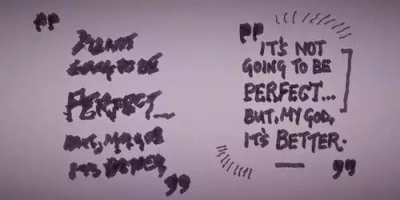 "NOT
GOING TO BE
PERFECT...
BUT, MY GOD
IT'S BETTER"
"IT'S NOT
GOING TO BE
PERFECT...
BUT, MY GOD,
IT'S BETTER.
"